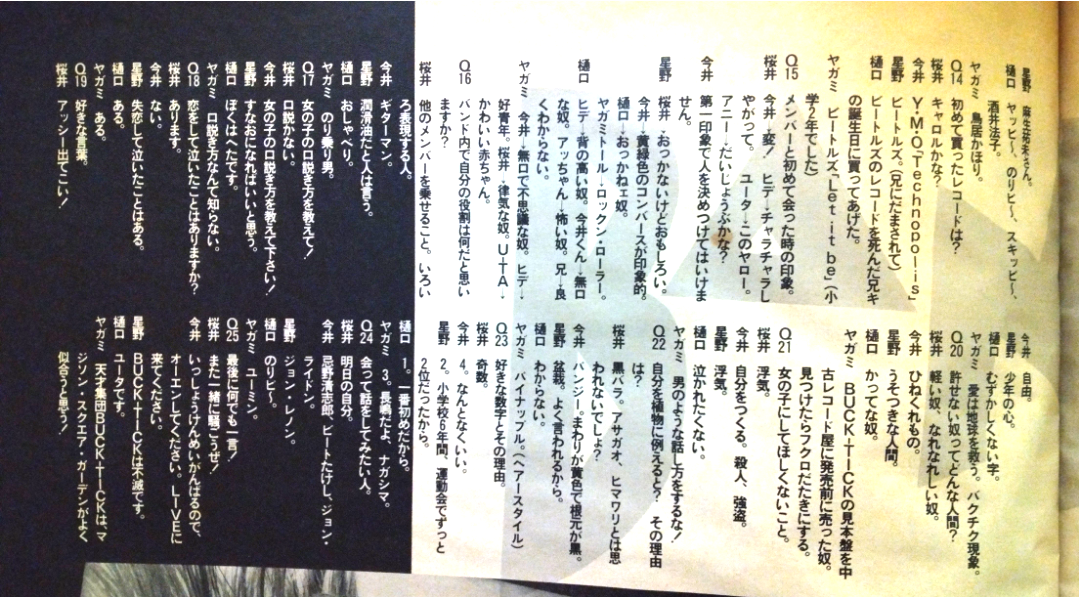 星野　麻生祐未さん。
樋口　ヤッピ〜、のりピ〜、スキッピ〜、
酒井法子。
ヤガミ　鳥居かほり。
Q14　初めて買ったレコードは？
桜井　キャロルかな？
今井　Y・M・O「Technopolis」
星野　ビートルズ。（兄にだまされて）
樋口　ビートルズのレコードを死んだ兄キ
の誕生日に買ってあげた。
ヤガミ　ビートルズ「Let it be」（小
学2年でした）
Q15　メンバーと初めて会った時の印象。
桜井　今井→変！　ヒデ→チャラチャラし
やがって。　ユータ→このヤロー。
アニー→だいじょうぶかな？
今井　第一印象で人を決めつけてはいけま
せん。
星野　桜井→おっかないけどおもしろい。
今井→黄緑色のコンバースが印象的。
樋口→おっかねェ奴。
ヤガミトール→ロックン・ローラー。
樋口　ヒデ→背の高い奴。今井くん→無口
な奴。アッちゃん→怖い奴。兄→良
くわからない。
ヤガミ　今井→無口で不思議な奴。ヒデ→
好青年。桜井→律気な奴。UTA→
かわいい赤ちゃん。
Q16　バンド内で自分の役割は何だと思い
ますか？
桜井　他のメンバーを乗せること。いろい
ろ表現する人。
今井　ギターマン。
星野　潤滑油だと人は言う。
樋口　おしゃべり。
ヤガミ　のり乗り男。
Q17　女の子の口説き方を教えて！
桜井　口説かない。
今井　女の子の口説き方を教えて下さい！
星野　すなおになればいいと思う。
樋口　ぼくはへたです。
ヤガミ　口説き方なんて知らない。
Q18　恋をして泣いたことはありますか？
桜井　あります。
今井　ない。
星野　失恋して泣いたことはある。
樋口　ある。
ヤガミ　ある。
Q19　好きな言葉。
桜井　アッシー出てこい！
今井　自由。
星野　少年の心。
樋口　むずかしくない字。
ヤガミ　愛は地球を救う。バクチク現象。
Q20　許せない奴ってどんな人間？
桜井　軽い奴、なれなれしい奴。
今井　ひねくれもの。
星野　うそつきな人間。
樋口　かってな奴。
ヤガミ　BUCK-TICKの見本盤を中
古レコード屋に発売前に売った奴。
見つけたらフクロだたきにする。
Q21　女の子にしてほしくないこと。
桜井　浮気。
今井　自分をつくる。殺人、強盗。
星野　浮気。
樋口　泣かれたくない。
ヤガミ　男のような話し方をするな！
Q22　自分を植物に例えると？　その理由
は？
桜井　黒バラ。アサガオ、ヒマワリとは思
われないでしょ？
今井　パンジー。まわりが黄色で根元が黒。
星野　盆栽。よく言われるから。
樋口　わからない。
ヤガミ　パイナップル。（ヘアースタイル）
Q23　好きな数字とその理由。
桜井　奇数。
今井　4。なんとなくいい。
星野　2。小学校6年間、運動会でずっと
2位だったから。
樋口　1。一番初めだから。
ヤガミ　3。長嶋だよ、ナガシマ。
Q24　会って話をしてみたい人。
桜井　明日の自分。
今井　忌野清志郎、ビートたけし、ジョン・
ライドン。
星野　ジョン・レノン。
樋口　のりピ〜。
ヤガミ　ユーミン。
Q25　最後に何でも一言！
桜井　また一緒に騒ごうぜ！
今井　いっしょうけんめいがんばるので、
オーエンしてください。LIVEに
来てください。
星野　BUCK-TICKは不滅です。
樋口　ユータです。
ヤガミ　天才集団BUCK-TICKは、マ
ジソン・スクエア・ガーデンがよく
似合うと思う！